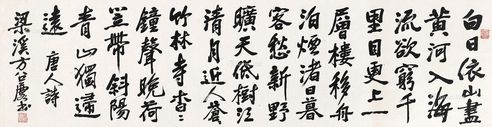 白日依山盡
黃河入海
流欲窮千
里目更上一
層樓移舟
泊煙渚日暮
客愁新野
曠天低樹江
清月近人蒼
竹林寺杳々
鐘聲晚荷
笠帶斜陽
青山獨歸
遠 唐人詩
梁溪方召麐